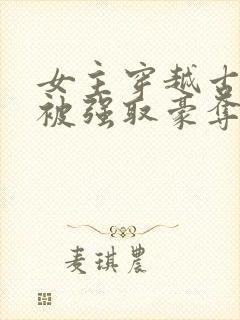 女主穿越古
被强取豪夺
麦琪农